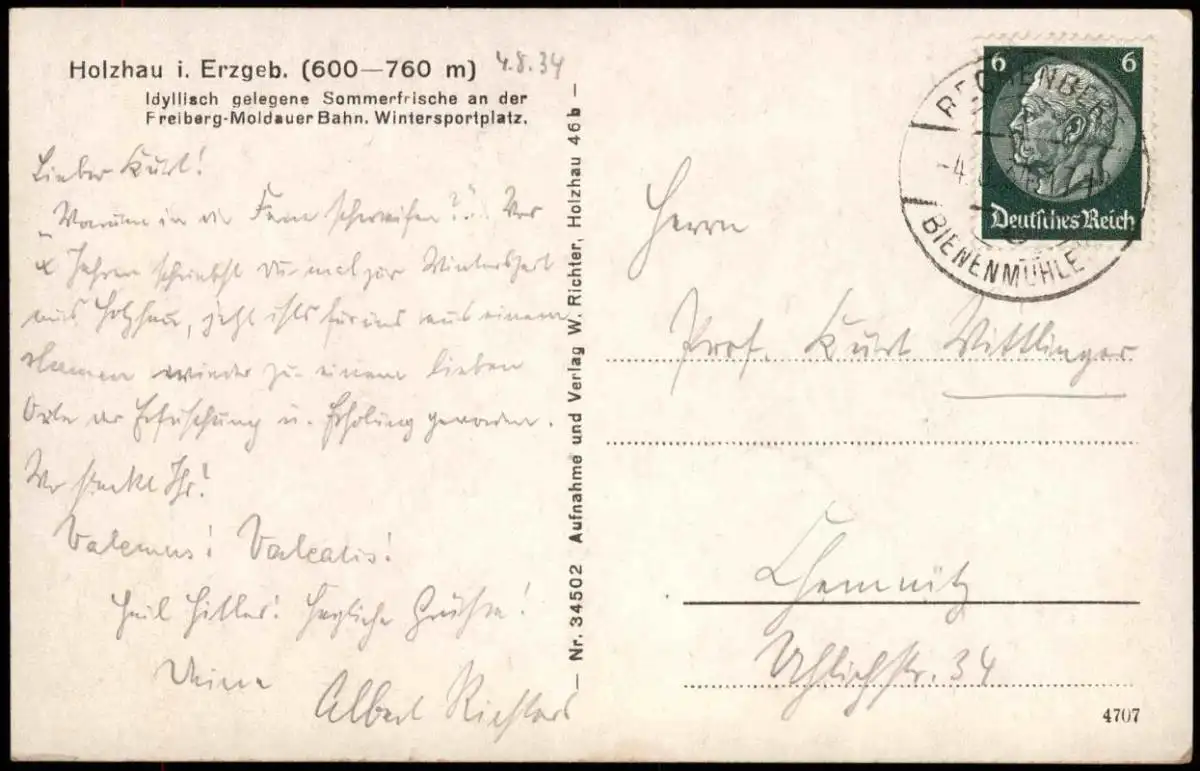 Holzhau i. Erzgeb. (600—760 m) 4.8.34
Idyllisch gelegene Sommerfrische an der
Freiberg-Moldauer Bahn. Wintersportplatz.
Lieber Kurt!
„Warum in die Ferne schweifen?" Vor
x Jahren schriebst Du mal zur Winterszeit
aus Holzhau, jetzt ists für uns aus einem
Namen wieder zu einem lieben
Orte der Erfrischung u. Erholung geworden.
Wo steckt Ihr?
Valemus! Valeatis!
Heil Hitler! Herzliche Grüße!
Deine
Albert Richters
— Nr. 34502 Aufnahme und Verlag W. Richter, Holzhau 46b —
6 6
Deutsches Reich
RECHENBERG
-4.
BIENENMÜHLE
Herrn
Prof. Kurt Wittlinger
Chemnitz
Uhlichstr. 34
4707